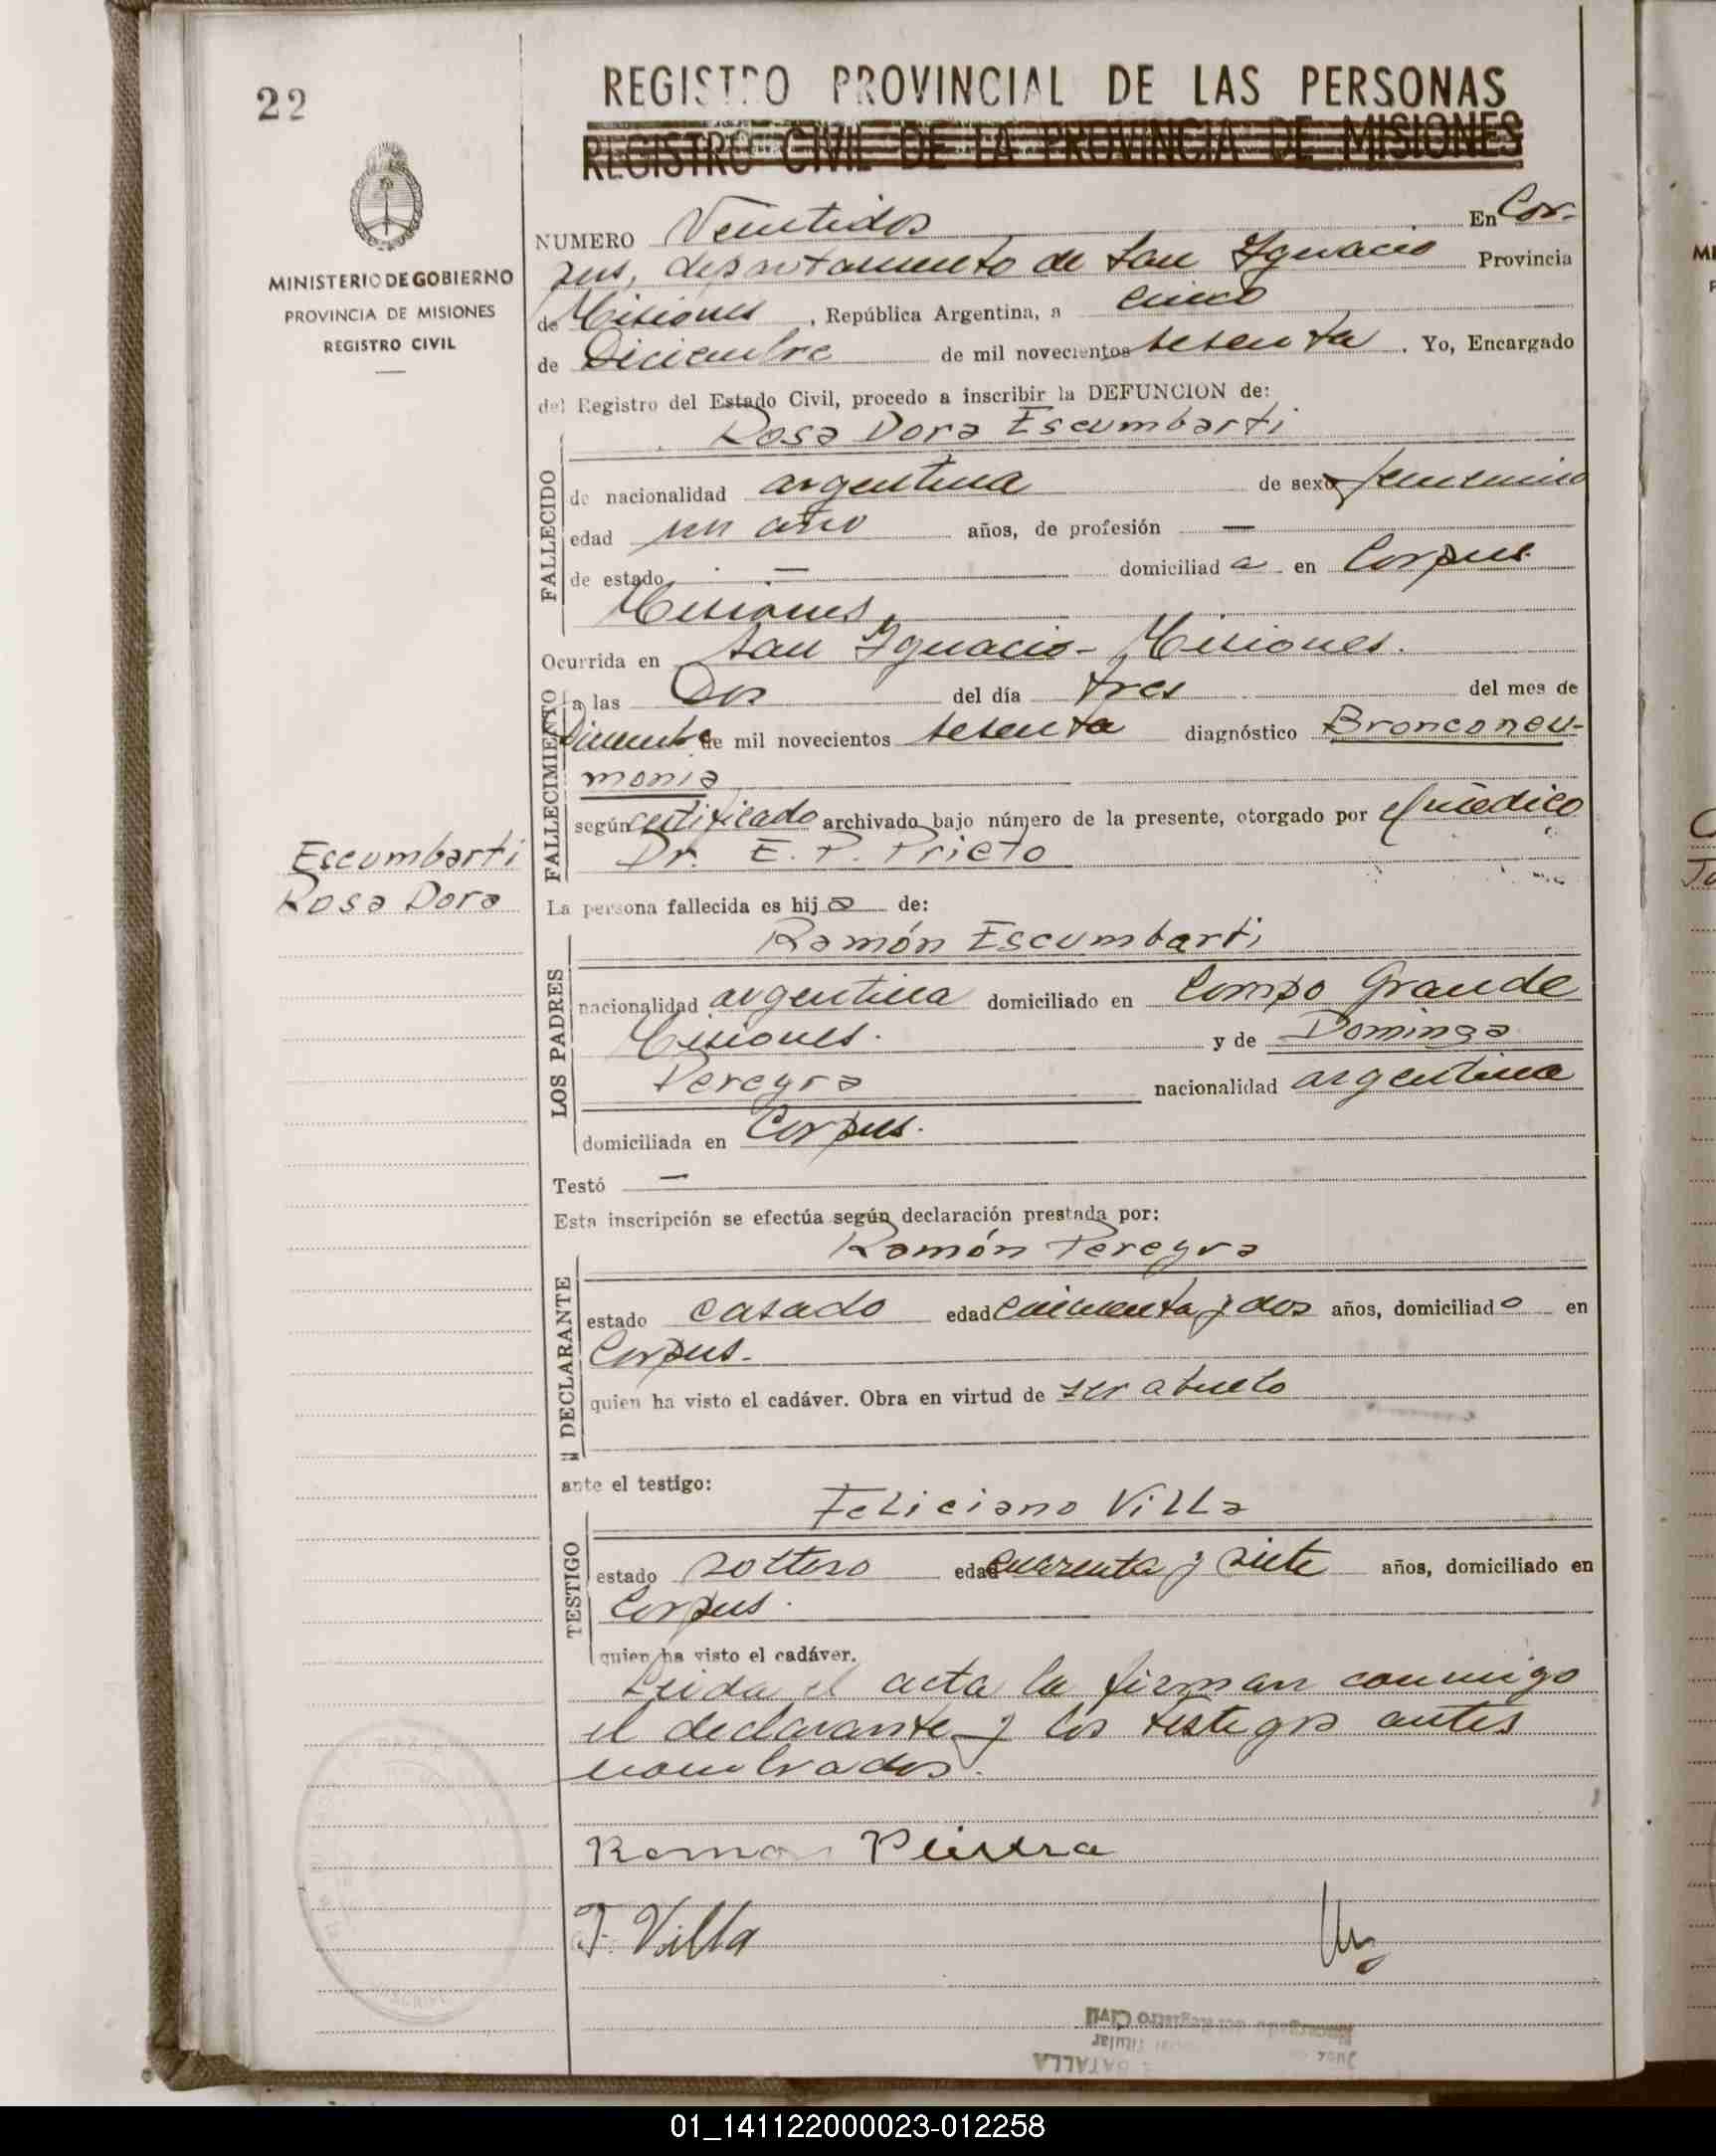 22
REGISTRO PROVINCIAL DE LAS PERSONAS
REGISTRO CIVIL DE LA PROVINCIA DE MISIONES
MINISTERIO DE GOBIERNO
PROVINCIA DE MISIONES
REGISTRO CIVIL
NUMERO Veintidos En Cor-
pus, departamento de San Ignacio Provincia
de Misiones, República Argentina, a cinco
de Diciembre de mil novecientos sesenta. Yo, Encargado
del Registro del Estado Civil, procedo a inscribir la DEFUNCION de:
Rosa Dora Escumbarti
FALLECIDO
de nacionalidad argentina de sexo femenino
edad un año años, de profesión —
de estado — domiciliada en Corpus
Misiones
FALLECIMIENTO
Ocurrida en San Ignacio - Misiones.
a las Dos del día tres del mes de
Diciembre de mil novecientos sesenta diagnóstico Bronconeu-
monia
según certificado archivado bajo número de la presente, otorgado por el médico
Dr. E. P. Prieto
Escumbarti
Rosa Dora
La persona fallecida es hija de:
LOS PADRES
Ramón Escumbarti
nacionalidad argentina domiciliado en Campo Grande
Misiones. y de Dominga
Pereyra nacionalidad argentina
domiciliada en Corpus.
Testó —
Esta inscripción se efectúa según declaración prestada por:
DECLARANTE
Ramón Pereyra
estado casado edad cincuenta y dos años, domiciliado en
Corpus.
quien ha visto el cadáver. Obra en virtud de ser abuelo
ante el testigo:
TESTIGO
Feliciano Villa
estado soltero edad cuarenta y siete años, domiciliado en
Corpus.
quien ha visto el cadáver.
Leida el acta la firman conmigo
el declarante y los testigos antes
nombrados.
F. Villa
Encargado del Registro Civil
Titular
BATALLA
01_141122000023-012258